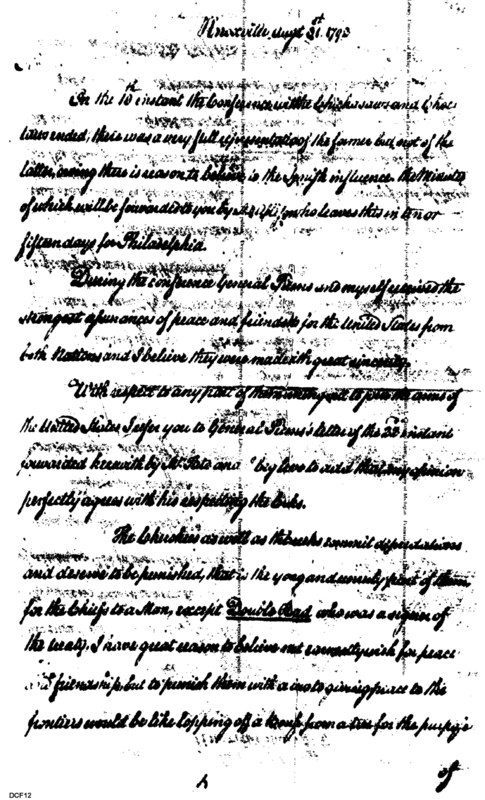 Knoxville, Augt 31st 1792
On the 10th instant the Conference with the Chickasaws and Choc
taws ended; there was a very full representation of the former but not of the
latter, owing there is reason to believe to the Spanish influence the Minutes
of which will be forwarded to you by who leaves this in ten or
fifteen days for Philadelphia.
During the conference General Pickens and myself received the
strongest assurances of peace and friendship for the United States from
both Nations and I believe they were made with great sincerity.
With respect to any part of them to join the arms of
the United States I refer you to General Pickens's letter of the instant
forwarded herewith by and beg leave to add that my opinion
perfectly agrees with his respecting the
The as well as the Creeks commit depredations
and deserve to be punished, that is the young and unruly part of them
for the Chiefs to a Man, except Double Head who was a signer of
the treaty, I have great reason to believe earnestly wish for peace
and friendship, but to punish them with a giving peace to the
frontiers would be like lopping off a from a tree for the purpose
of
DCF12